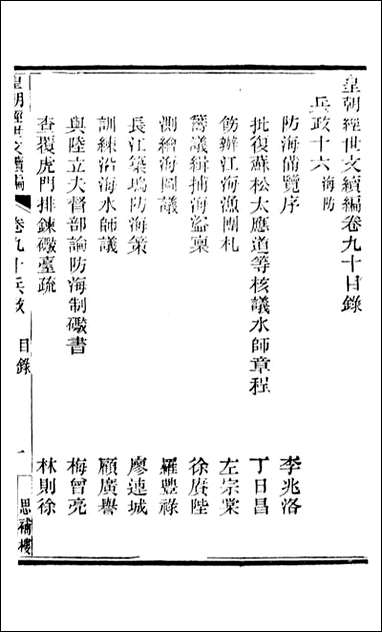 皇朝經世文續編卷九十目錄
兵政十六海防
防海備覽序 李兆洛
批復蘇松太應道等核議水師章程 丁日昌
飭辦江海漁團札 左宗棠
籌議緝捕海盜稟 徐賡陛
測繪海圖議 羅豐祿
長江築塢防海策 廖連城
訓練沿海水師議 顧廣譽
與陸立夫督部論防海制礮書 梅曾亮
查覆虎門排鍊礮臺疏 林則徐
皇朝經世文續編 卷九十兵政 目錄 一 思補樓